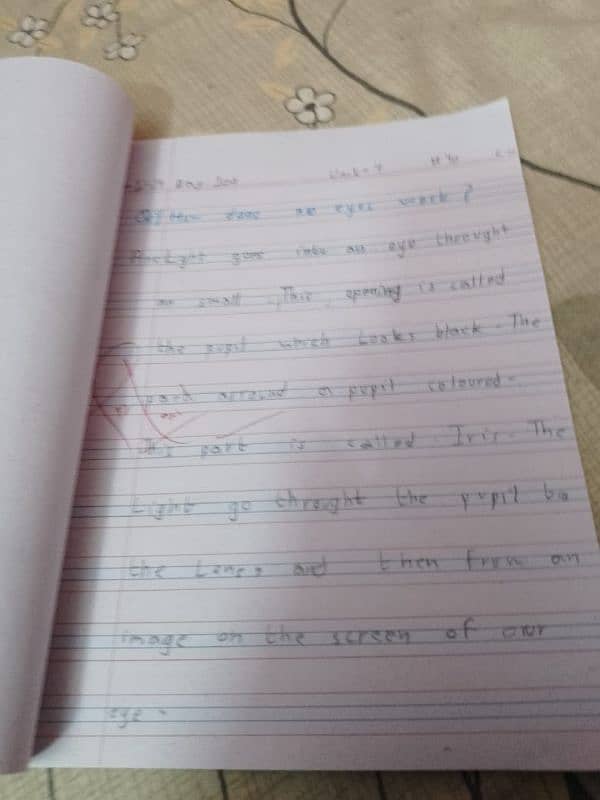 how does an eyes work?
Ans Light goes into an eye throught
an small. This opening is called
the pupil which Looks black. The
part arround a pupil coloured.
This part is called Iris. The
Light go throught the pupil to
the Lenes and then from an
image on the screen of our
eye.